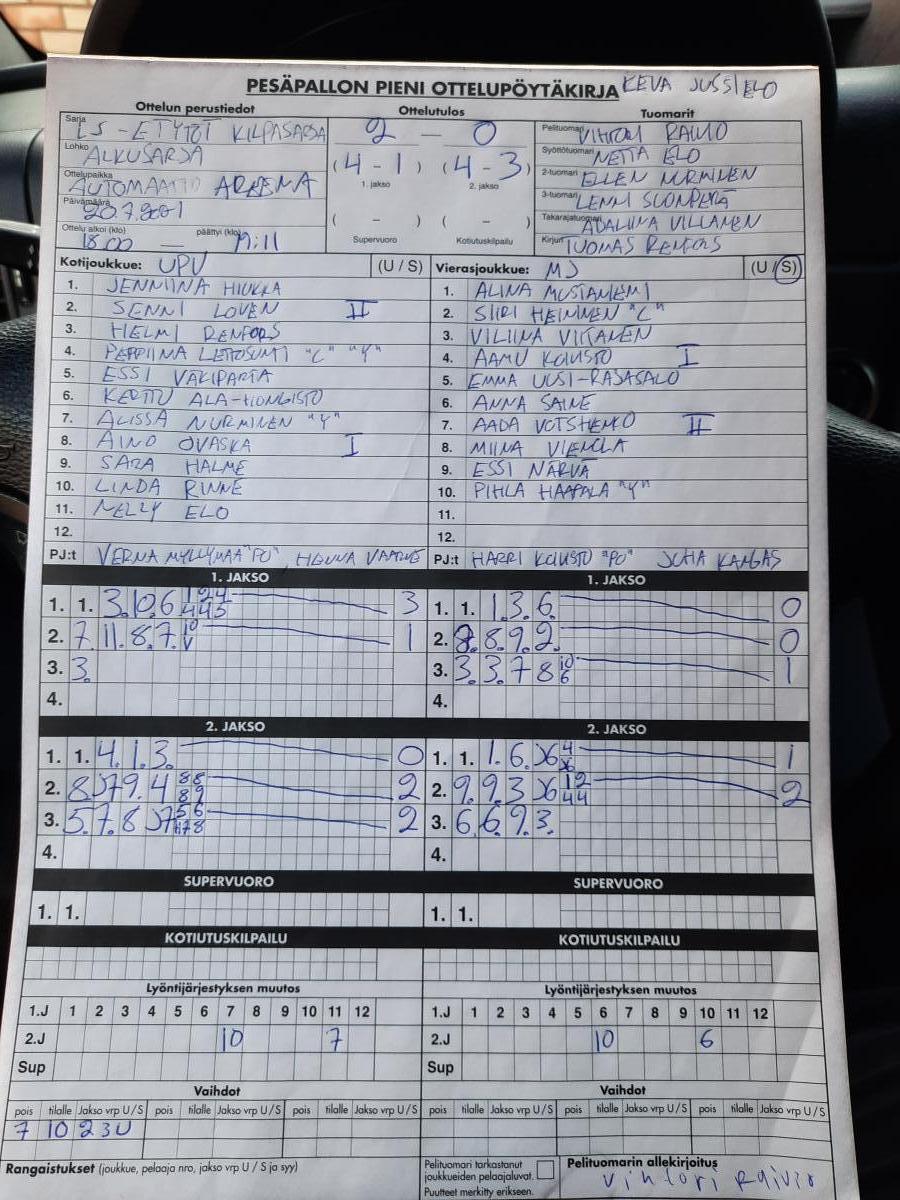 PESÄPALLON PIENI OTTELUPÖYTÄKIRJA KEVA JUSSI ELO
Ottelun perustiedot Ottelutulos Tuomarit
Sarja LS - E TYTÖT KILPASARJA 2 - 0 Pelituomari
Lohko ALKUSARJA (4 - 1) (4 - 3) Syöttötuomari NETTA ELO
1. jakso 2. jakso
Ottelupaikka AUTOMAATIO AREENA 2-tuomari ELLEN NURMINEN
Päivämäärä 3-tuomari LENNI SUONPERÄ
( - ) ( - ) Takarajatuomari
Ottelu alkoi (klo) 18.00 — päättyi (klo) 19:11 Supervuoro Kotiutuskilpailu Kirjuri TUOMAS RENFORS
Kotijoukkue: UPV (U / S) Vierasjoukkue: MJ (U / S)
1. JENNIINA HIUKKA 1. ALINA MUSTANIEMI
2. SENNI LOVEN II 2. SIIRI HEININEN "C"
3. HELMI RENFORS 3. VILIINA VIITANEN
4. PEPPIINA "C" "Y" 4. AAMU KOIVISTO I
5. ESSI VÄKIPARTA 5. EMMA UUSI-RAJASALO
6. KERTTU ALA-HONGISTO 6. ANNA SAINE
7. ALISSA NURMINEN "Y" 7. AADA VOTSHENKO II
8. AINO OVASKA I 8. MIINA VIENOLA
9. SARA HALME 9. ESSI NÄRVÄ
10. LINDA RINNE 10. PIHLA HAAPALA "Y"
11. NELLY ELO 11.
12. 12.
PJ:t VERNA MYLLYMAA "PO" HENNA PJ:t HARRI KOIVISTO "PO" JUHA KANGAS
1. JAKSO 1. JAKSO
1. 1. 3. 10. 6 3 1. 1. 1. 3. 6. 0
2. 7. 11. 8. 7. 1 2. 8. 8. 9. 2. 0
3. 3. 3. 3. 3. 7 8 10 6 1
4. 4.
2. JAKSO 2. JAKSO
1. 1. 4. 1. 3. 0 1. 1. 1. 6. 1
2. 2 2. 9. 9. 3 2
3. 5. 7. 8 2 3. 6. 6. 9. 3.
4. 4.
SUPERVUORO SUPERVUORO
1. 1. 1. 1.
KOTIUTUSKILPAILU KOTIUTUSKILPAILU
Lyöntijärjestyksen muutos Lyöntijärjestyksen muutos
1.J 1 2 3 4 5 6 7 8 9 10 11 12 1.J 1 2 3 4 5 6 7 8 9 10 11 12
2.J 10 7 2.J 10 6
Sup Sup
Vaihdot Vaihdot
pois tilalle Jakso vrp U/S pois tilalle Jakso vrp U/S pois tilalle Jakso vrp U/S pois tilalle Jakso vrp U/S pois tilalle Jakso vrp U/S pois tilalle Jakso vrp U/S
7 10 2 3 U
Rangaistukset (joukkue, pelaaja nro, jakso vrp U / S ja syy) Pelituomari tarkastanut Pelituomarin allekirjoitus
joukkueiden pelaajaluvat.
Puutteet merkitty erikseen.